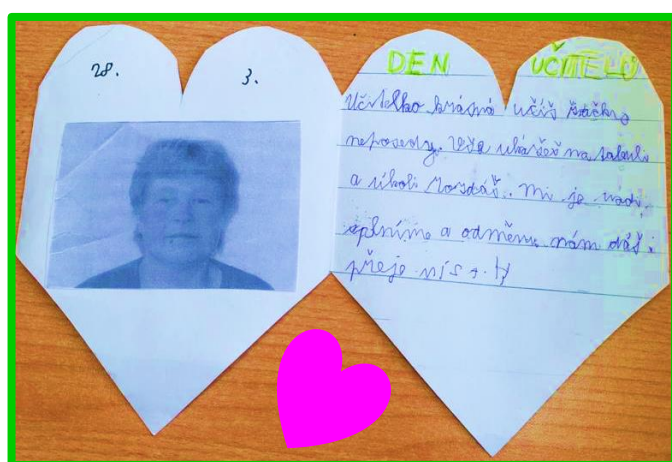 28. 3.
DEN UČITELŮ
Učitelko krásná učíš žáčky
neposedy. Vše ukážeš na tabuli
a úkoli rozdáš. Mi je rádi
splníme a odměnu nám dáš i
přeje